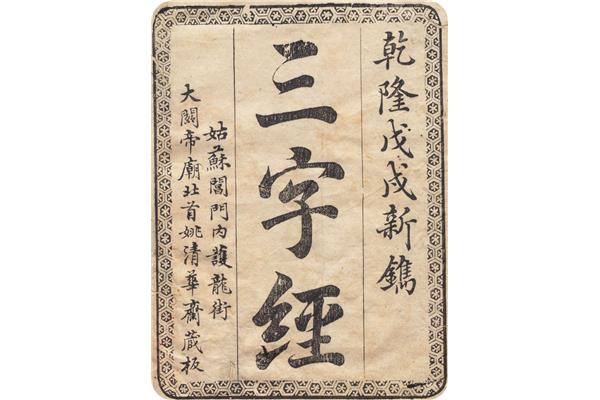 乾隆戊戌新鐫
三字經
姑蘇閶門內護龍街
大關帝廟北首姚清華齋蔵板